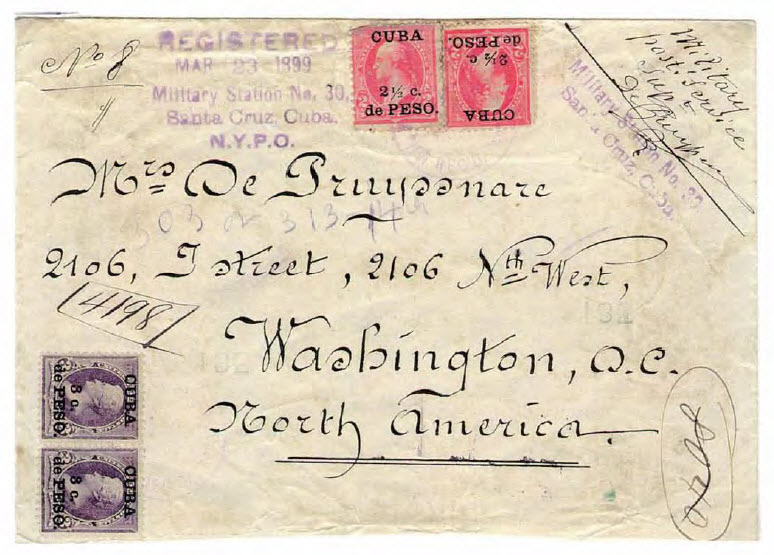 No 8
REGISTERED
MAR 23 1899
Military Station No. 30,
Santa Cruz, Cuba.
N.Y.P.O.
CUBA
2½ c.
de PESO.
CUBA
2½ c.
de PESO
Military
postal service
Military Station No. 30
Santa Cruz, Cuba.
Mrs De Pruyssnare
2106, I street, 2106 Nth West,
4198
Washington, D.C.
North America.
CUBA
8 c.
de PESO.
CUBA
8 c.
de PESO.
132
132